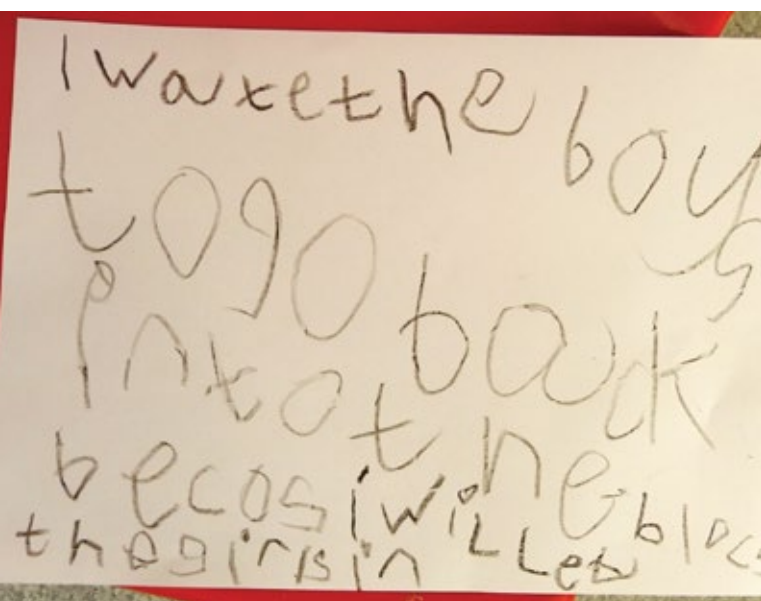 I waxtethe boys
togo back
intothe blocs
becos i will let
thegirlsin